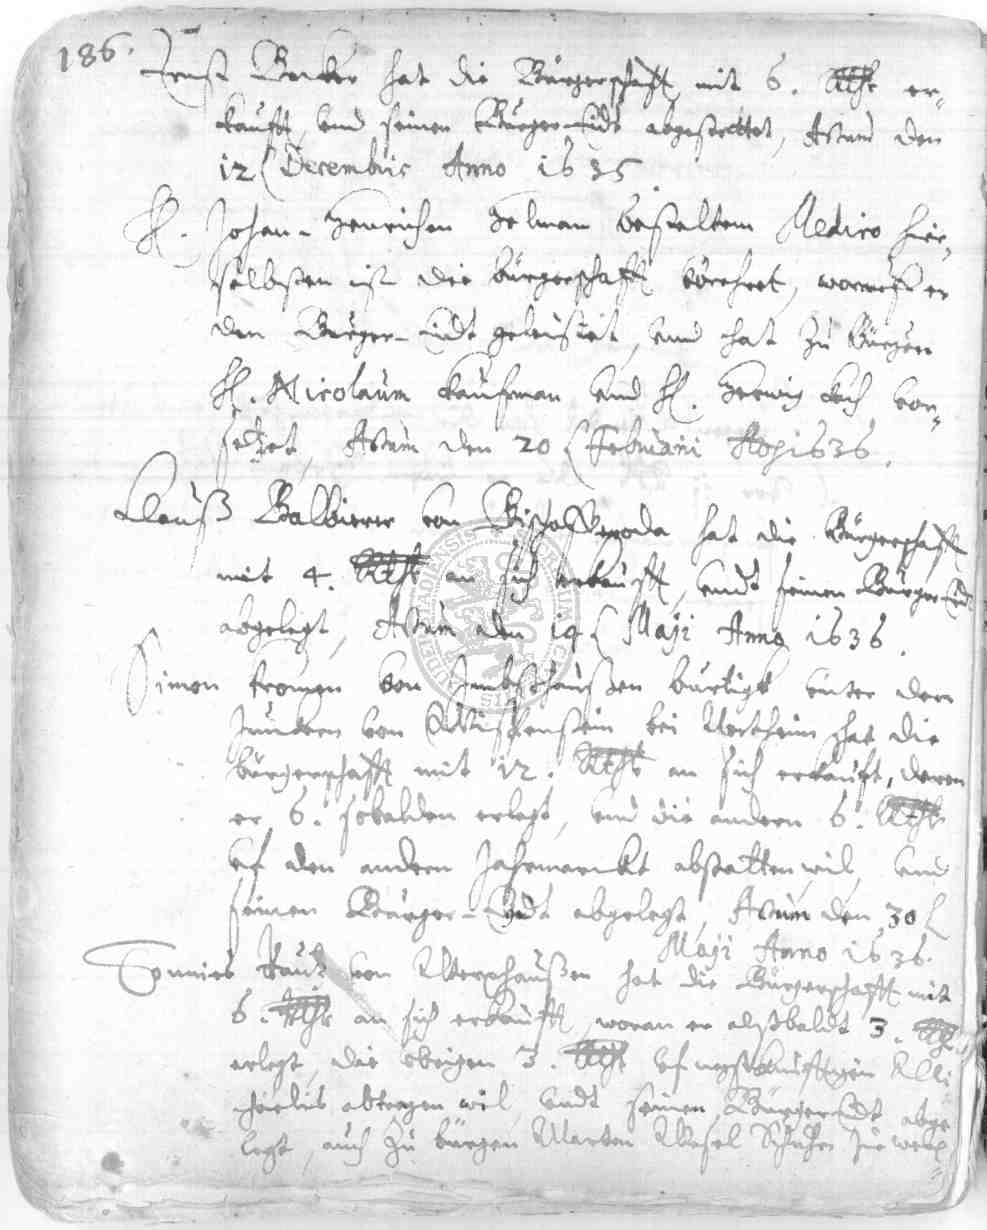 186.
Ernst Becker hat die Bürgerschafft mit 6. Rthlr er-
kaufft, und seinen Bürger-Eidt abgestattet, Actum den
12 Decembris Anno 1635
H. Johan-Henrichen Helman bestaltem Medico hie-
selbsten ist die bürgerschafft verehret, worauff er
den Bürger-Eidt geleistet, und hat zu Bürgen
H. Nicolaum Kaufman und H. Herwig Koch vor-
setzet Actum den 20 Februarii Anno 1636.
Clauß Balbierer von Bischofswerda hat die Bürgerschafft
mit 4. Rthlr an sich erkaufft, undt seinen Bürger-Eidt
abgelegt, Actum den 14 Maji Anno 1636.
Simon von Imbshaußen bürtigk unter dem
Junckern von bei Northeim hat die
bürgerschafft mit 12. Rthlr an sich erkauft, deren
er 6. sobalden erlegt, und die andern 6. Rthlr
uf den andern Jahrmarckt abstatten wil, und
seinen Bürger-Eydt abgelegt, Actum den 30
Maji Anno 1636.
Tonnies von hat die Bürgerschafft mit
6. Rthlr an sich erkaufft, woran er alßbaldt 3. Rthlr
erlegt, die übrigen 3. Rthlr uf negstkunfftigen Mi-
chaelis abtragen wil, undt seinen Bürger Eidt abge-
legt, auch zu bürgen Marten